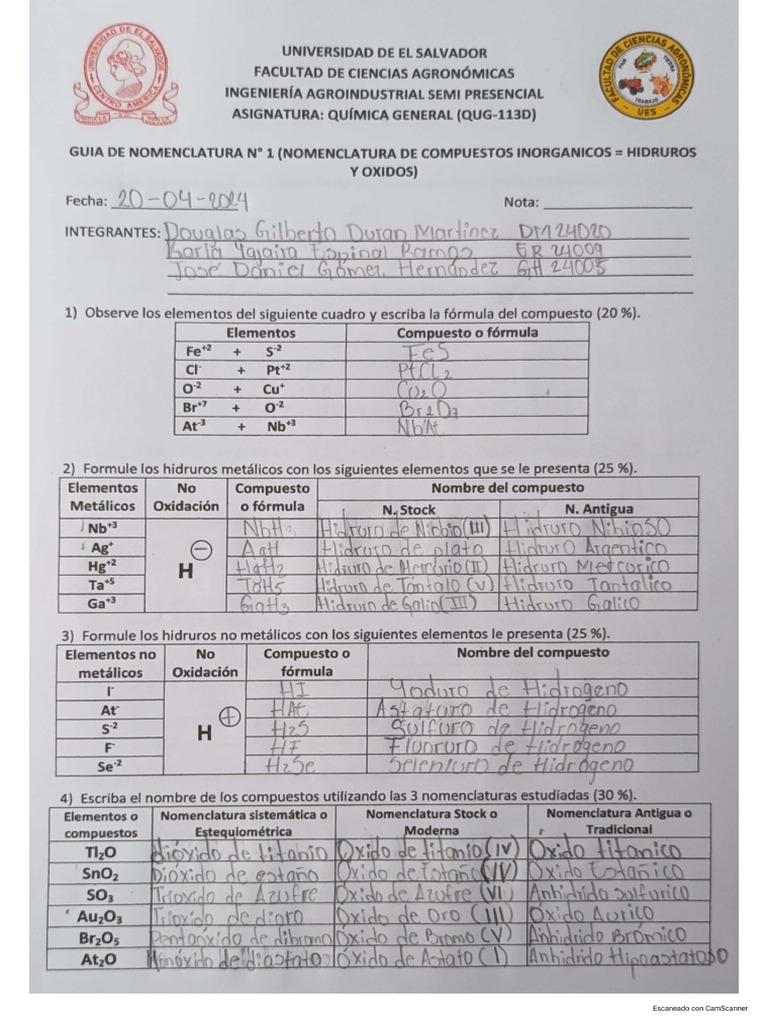 UNIVERSIDAD DE EL SALVADOR
FACULTAD DE CIENCIAS AGRONÓMICAS
INGENIERÍA AGROINDUSTRIAL SEMI PRESENCIAL
ASIGNATURA: QUÍMICA GENERAL (QUG-113D)
GUIA DE NOMENCLATURA N° 1 (NOMENCLATURA DE COMPUESTOS INORGANICOS = HIDRUROS
Y OXIDOS)
Fecha: 20-04-2024 Nota:
INTEGRANTES: Douglas Gilberto Duran Martínez DM24020
Karla Yajaira Espinal Ramos ER 24009
José Daniel Gómez Hernández GH 24005
1) Observe los elementos del siguiente cuadro y escriba la fórmula del compuesto (20 %).
Elementos Compuesto o fórmula
Fe+2 + S-2 FeS
Cl- + Pt+2 PtCl2
O-2 + Cu+ Cu2O
Br+7 + O-2 Br2O7
At-3 + Nb+3 NbAt
2) Formule los hidruros metálicos con los siguientes elementos que se le presenta (25 %).
Elementos Metálicos No Oxidación Compuesto o fórmula Nombre del compuesto
N. Stock N. Antigua
Nb+3 H - NbH3 Hidruro de Niobio (III) Hidruro NibioSO
Ag+ AgH Hidruro de plata Hidruro Argentico
Hg+2 HgH2 Hidruro de Mercurio (II) Hidruro Mercorico
Ta+5 TaH5 Hidruro de Tántalo (V) Hidruro Tantalico
Ga+3 GaH3 Hidruro de Galio (III) Hidruro Galico
3) Formule los hidruros no metálicos con los siguientes elementos le presenta (25 %).
Elementos no metálicos No Oxidación Compuesto o fórmula Nombre del compuesto
I- H + HI Yoduro de Hidrogeno
At- HAt Astaturo de Hidrógeno
S-2 H2S Sulfuro de Hidrógeno
F- HF Fluoruro de Hidrógeno
Se-2 H2Se Seleniuro de Hidrógeno
4) Escriba el nombre de los compuestos utilizando las 3 nomenclaturas estudiadas (30 %).
Elementos o compuestos Nomenclatura sistemática o Estequiométrica Nomenclatura Stock o Moderna Nomenclatura Antigua o Tradicional
Tl2O dióxido de titanio Oxido de titanio (IV) Óxido titanico
SnO2 Dióxido de estaño Óxido de Estaño (IV) Óxido Estañico
SO3 Trióxido de Azufre Óxido de Azufre (VI) Anhidrido sulfurico
Au2O3 Trióxido de dioro Óxido de Oro (III) Óxido Aurico
Br2O5 Pentaóxido de dibromo Óxido de Bromo (V) Anhidrido Brómico
At2O Monóxido de diastato Óxido de Astato (I) Anhidrido Hipoastatoso
Escaneado con CamScanner